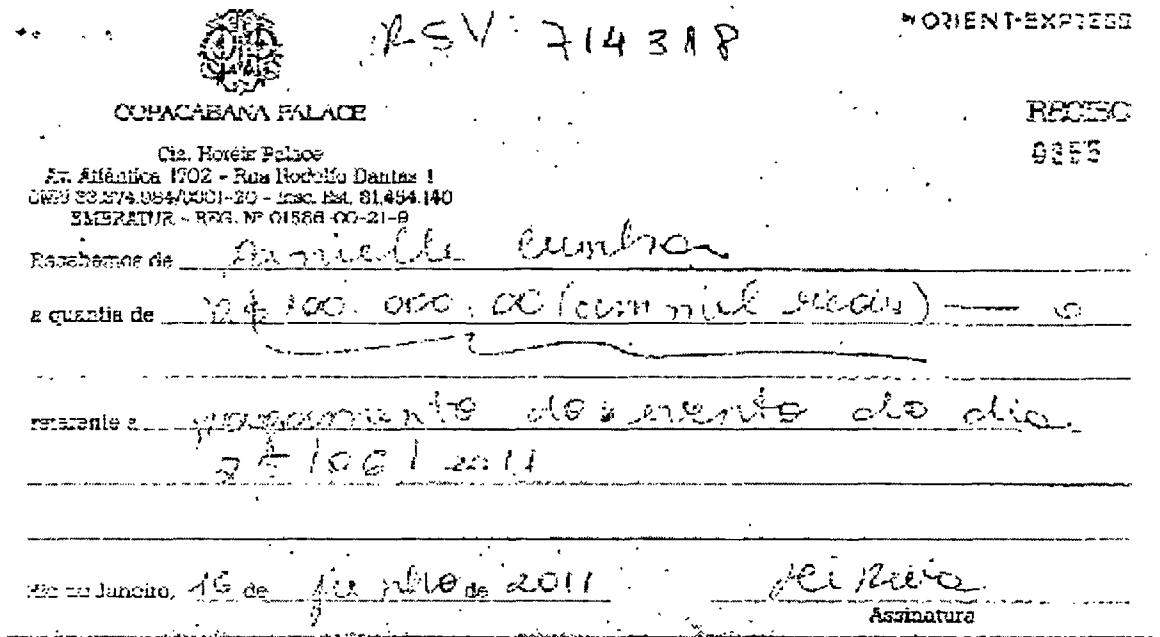 RSV: 714318
ORIENT-EXPRESS
COPACABANA PALACE
RECIBO
Cia. Hotéis Palace
Av. Atlântica 1702 - Rua Rodolfo Dantas 1
- Insc. Est. 81.454.140
EMBRATUR - REG. Nº 01586-00-21-9
Recebemos de Danielle Cunha
a quantia de R$ 100.000,00 (cem mil reais)
referente a pagamento do evento do dia
/06/2011
Rio de Janeiro, 16 de junho de 2011
Assinatura